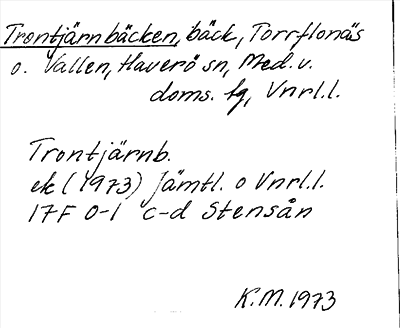 Trontjärnbäcken, bäck, Torrflonäs
o. Vallen, Haverö sn, Med. v.
doms. tg, Vnrl.l.
Trontjärnb.
ek (1973) Jämtl. o Vnrl.l.
17F 0-1 c-d Stensån
K.M. 1973